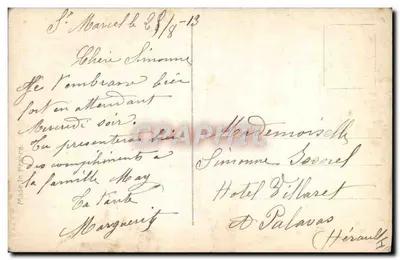 St Marcel le 25/8-13
Chère Simonne
Je t'embrasse bien
fort en attendant
Mercredi soir.
Tu présenteras
des compliments à
la famille May
Ta tante
Marguerite
Mademoiselle
Simonne
Hotel Villaret
à Palavas
(Hérault)